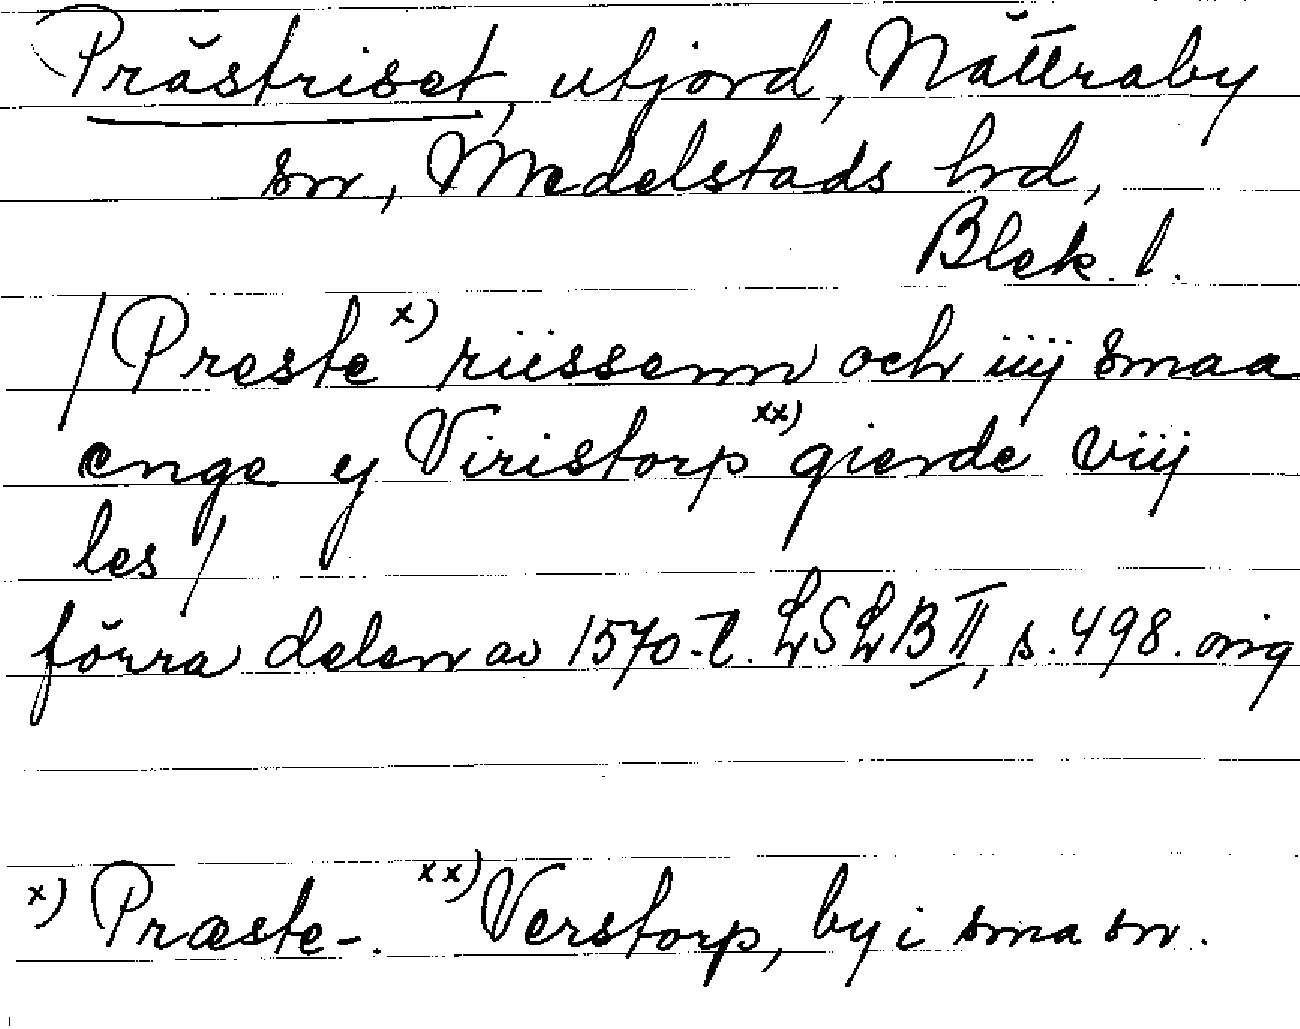 Prästriset, utjord, Nättraby
sn, Medelstads hd,
Blek. l.
/Preste x) riissenn och iiij smaa
enge ij Viristorp xx) gierde viij
les/
förra delen av 1570-t. LSLB II, s. 498. orig
x) Præste-. xx) Verstorp, by i sma sn.